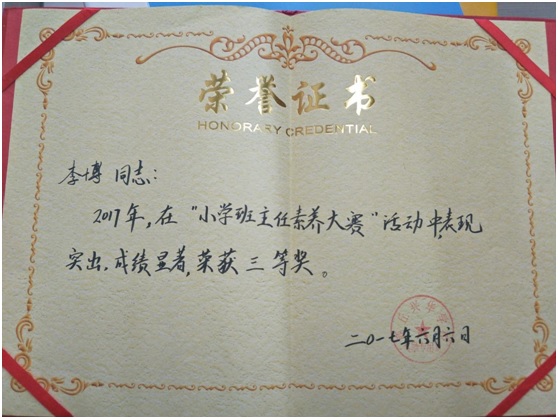 荣誉证书
HONORARY CREDENTIAL
李博 同志:
2017年,在"小学班主任素养大赛"活动中,表现
突出,成绩显著,荣获 三 等奖。
二〇一七年六月六日